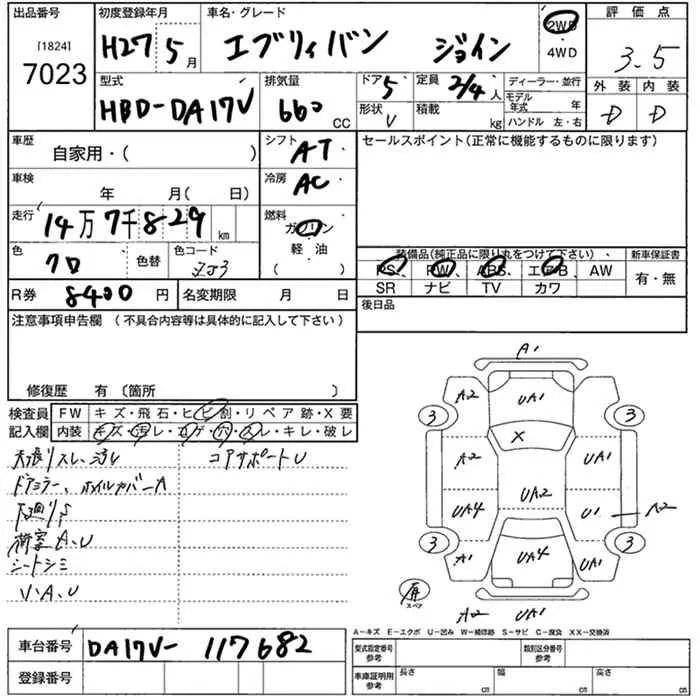 出品番号 初度登録年月 車名・グレード 2WD 評価点
[1824] 7023 H27 5月 エブリィバン ジョイン 4WD 3.5
型式 排気量 ドア 定員 ディーラー・並行 外装 内装
HBD-DA17V 660 CC 5 2/4人 モデル年式 年 D D
形状 V 積載 kg ハンドル 左・右
車歴 自家用・( ) シフト AT セールスポイント(正常に機能するものに限ります)
車検 年 月( 日) 冷房 AC
走行 14万7千829 km 燃料 ガソリン
軽・油
( )
色 クロ 色替 色コード ZJ3 装備品(純正品に限り丸をつけて下さい) 新車保証書
PS PW ABS エアB AW 有・無
SR ナビ TV カワ
R券 8400円 名変期限 月 日 後日品
注意事項申告欄(不具合内容等は具体的に記入して下さい)
修復歴 有〔箇所 〕
検査員 FW キズ・飛石・ヒビ割・リペア跡・X要
記入欄 内装 キズ・汚レ・コゲ・穴・スレ・キレ・破レ
天張リスレ、汚レ コアサポートU
ドアミラー、ホイルカバーA
下廻リS
荷室A、U
シートシミ
V、A、U
A1
A2 UA1
3 3
X
A2 UA1
UA2
UA4 U1 A2
3 3
A1 UA4 UA1
スペア
A2 UA1
A-キズ E-エクボ U-凹み W-補修跡 S-サビ C-腐食 XX-交換済
車台番号 DA17V-117682
型式指定番号 参考 類別区分番号 参考
登録番号
車庫証明用 参考 長さ cm 幅 cm 高さ cm